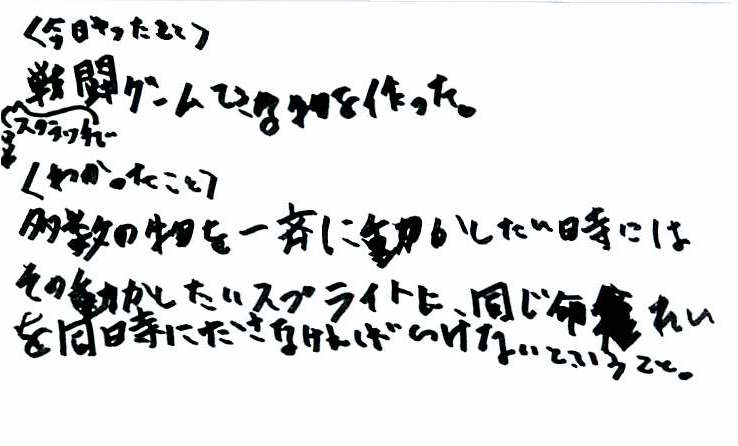 〈今日やったこと〉
スクラッチで
戦闘ゲームてきな物を作った。
〈わかったこと〉
多数の物を一斉に動かしたい時には
その動かしたいスプライトに、同じ命れい
を同時にださなければいけないということ。